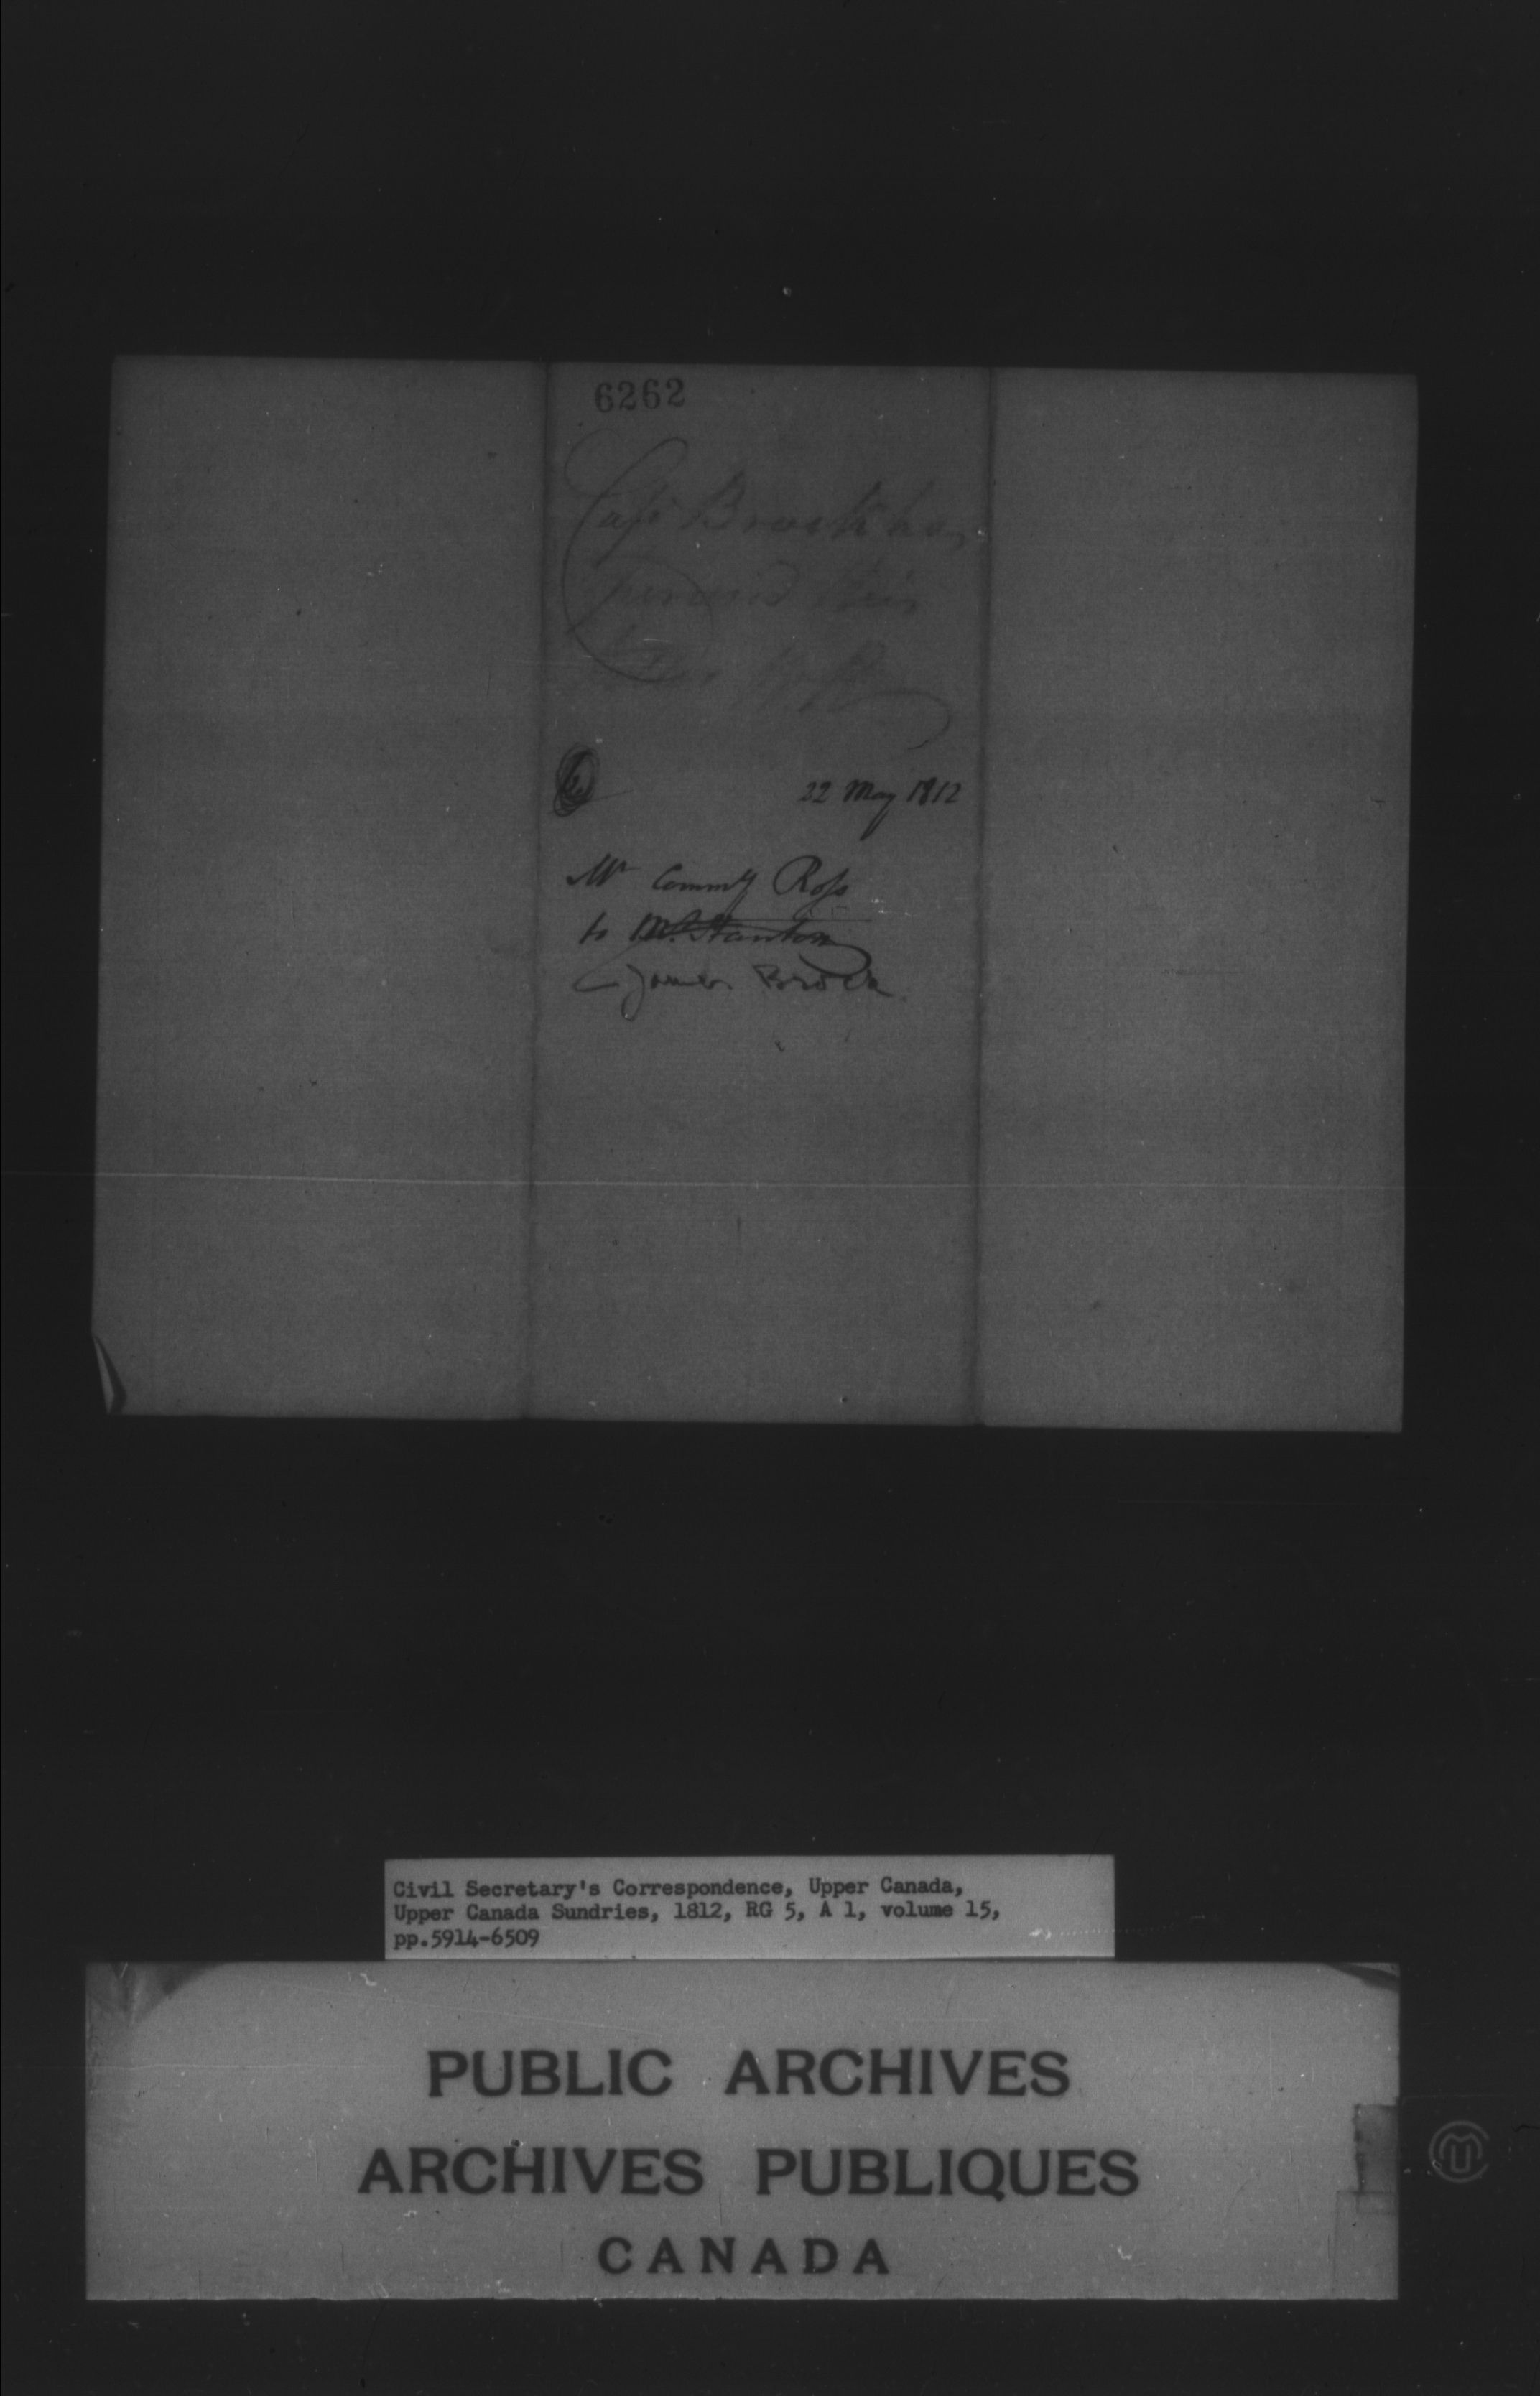 6262
Capt Brock has
22 May 1812
Mr Commy Ross
to Mr. Stanton
James Brock
Civil Secretary's Correspondence, Upper Canada,
Upper Canada Sundries, 1812, RG 5, A 1, volume 15,
pp.5914-6509
PUBLIC ARCHIVES
ARCHIVES PUBLIQUES
CANADA